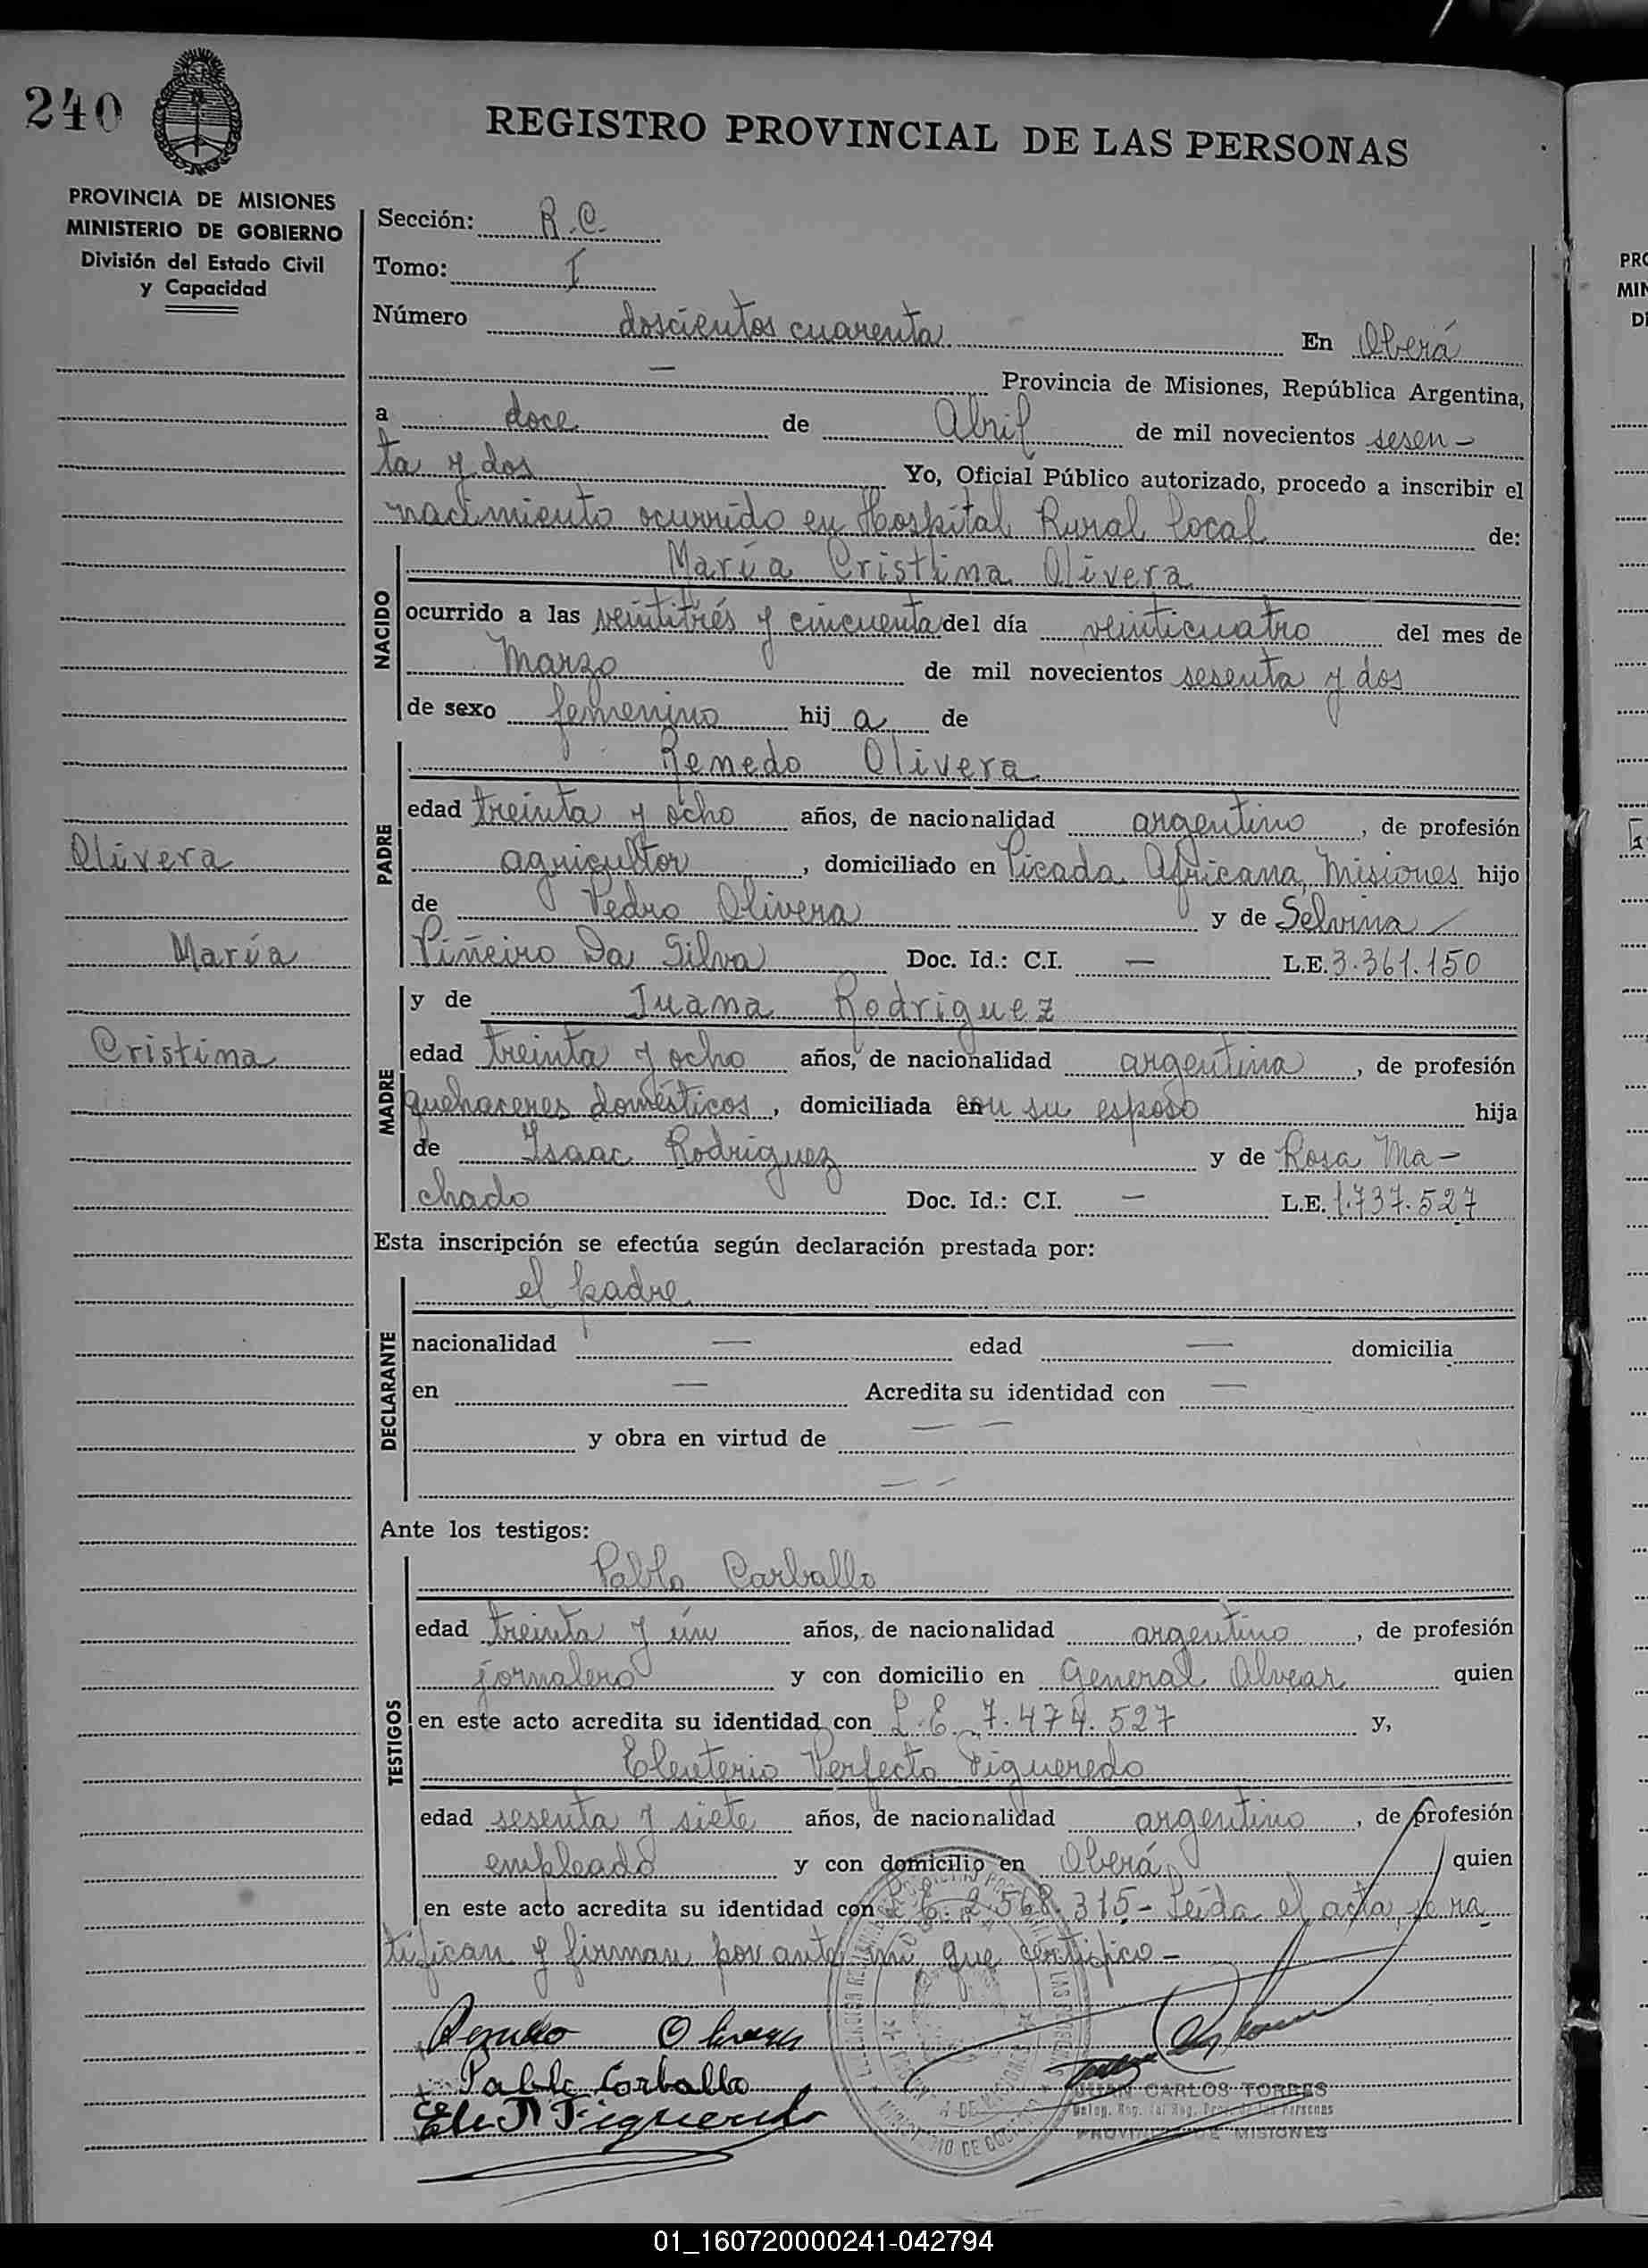 240
REGISTRO PROVINCIAL DE LAS PERSONAS
PROVINCIA DE MISIONES
MINISTERIO DE GOBIERNO
División del Estado Civil
y Capacidad
Sección: R.C.
Tomo: I
Número doscientos cuarenta En Oberá
— Provincia de Misiones, República Argentina,
a doce de Abril de mil novecientos sesen-
ta y dos Yo, Oficial Público autorizado, procedo a inscribir el
nacimiento ocurrido en Hospital Rural local de:
NACIDO
María Cristina Olivera
ocurrido a las veintitrés y cincuenta del día veinticuatro del mes de
Marzo de mil novecientos sesenta y dos
de sexo femenino hij a de
PADRE
Remedo Olivera
edad treinta y ocho años, de nacionalidad argentino, de profesión
agricultor, domiciliado en Picada Africana, Misiones hijo
de Pedro Olivera y de Selvina
Piñeiro Da Silva Doc. Id.: C.I. — L.E. 3.361.150
Olivera
María
Cristina
MADRE
y de Juana Rodriguez
edad treinta y ocho años, de nacionalidad argentina, de profesión
quehaceres domésticos, domiciliada con su esposo hija
de Isaac Rodriguez y de Rosa Ma-
chado Doc. Id.: C.I. — L.E. 1.737.527
Esta inscripción se efectúa según declaración prestada por:
DECLARANTE
el padre
nacionalidad — edad — domicilia
en — Acredita su identidad con —
y obra en virtud de — —
— —
Ante los testigos:
TESTIGOS
Pablo Carballo
edad treinta y ún años, de nacionalidad argentino, de profesión
jornalero y con domicilio en General Alvear quien
en este acto acredita su identidad con L.E. 7.474.527 y,
Eleuterio Perfecto Figueredo
edad sesenta y siete años, de nacionalidad argentino, de profesión
empleado y con domicilio en Oberá quien
en este acto acredita su identidad con L.E. 2.568.315- Leída el acta, se ra
tifican y firman por ante mí, que certifico-
Remedo Olivera
Pablo Carballo
Ele P Figueredo
JUAN CARLOS TORRES
PROVINCIA DE MISIONES
01_160720000241-042794